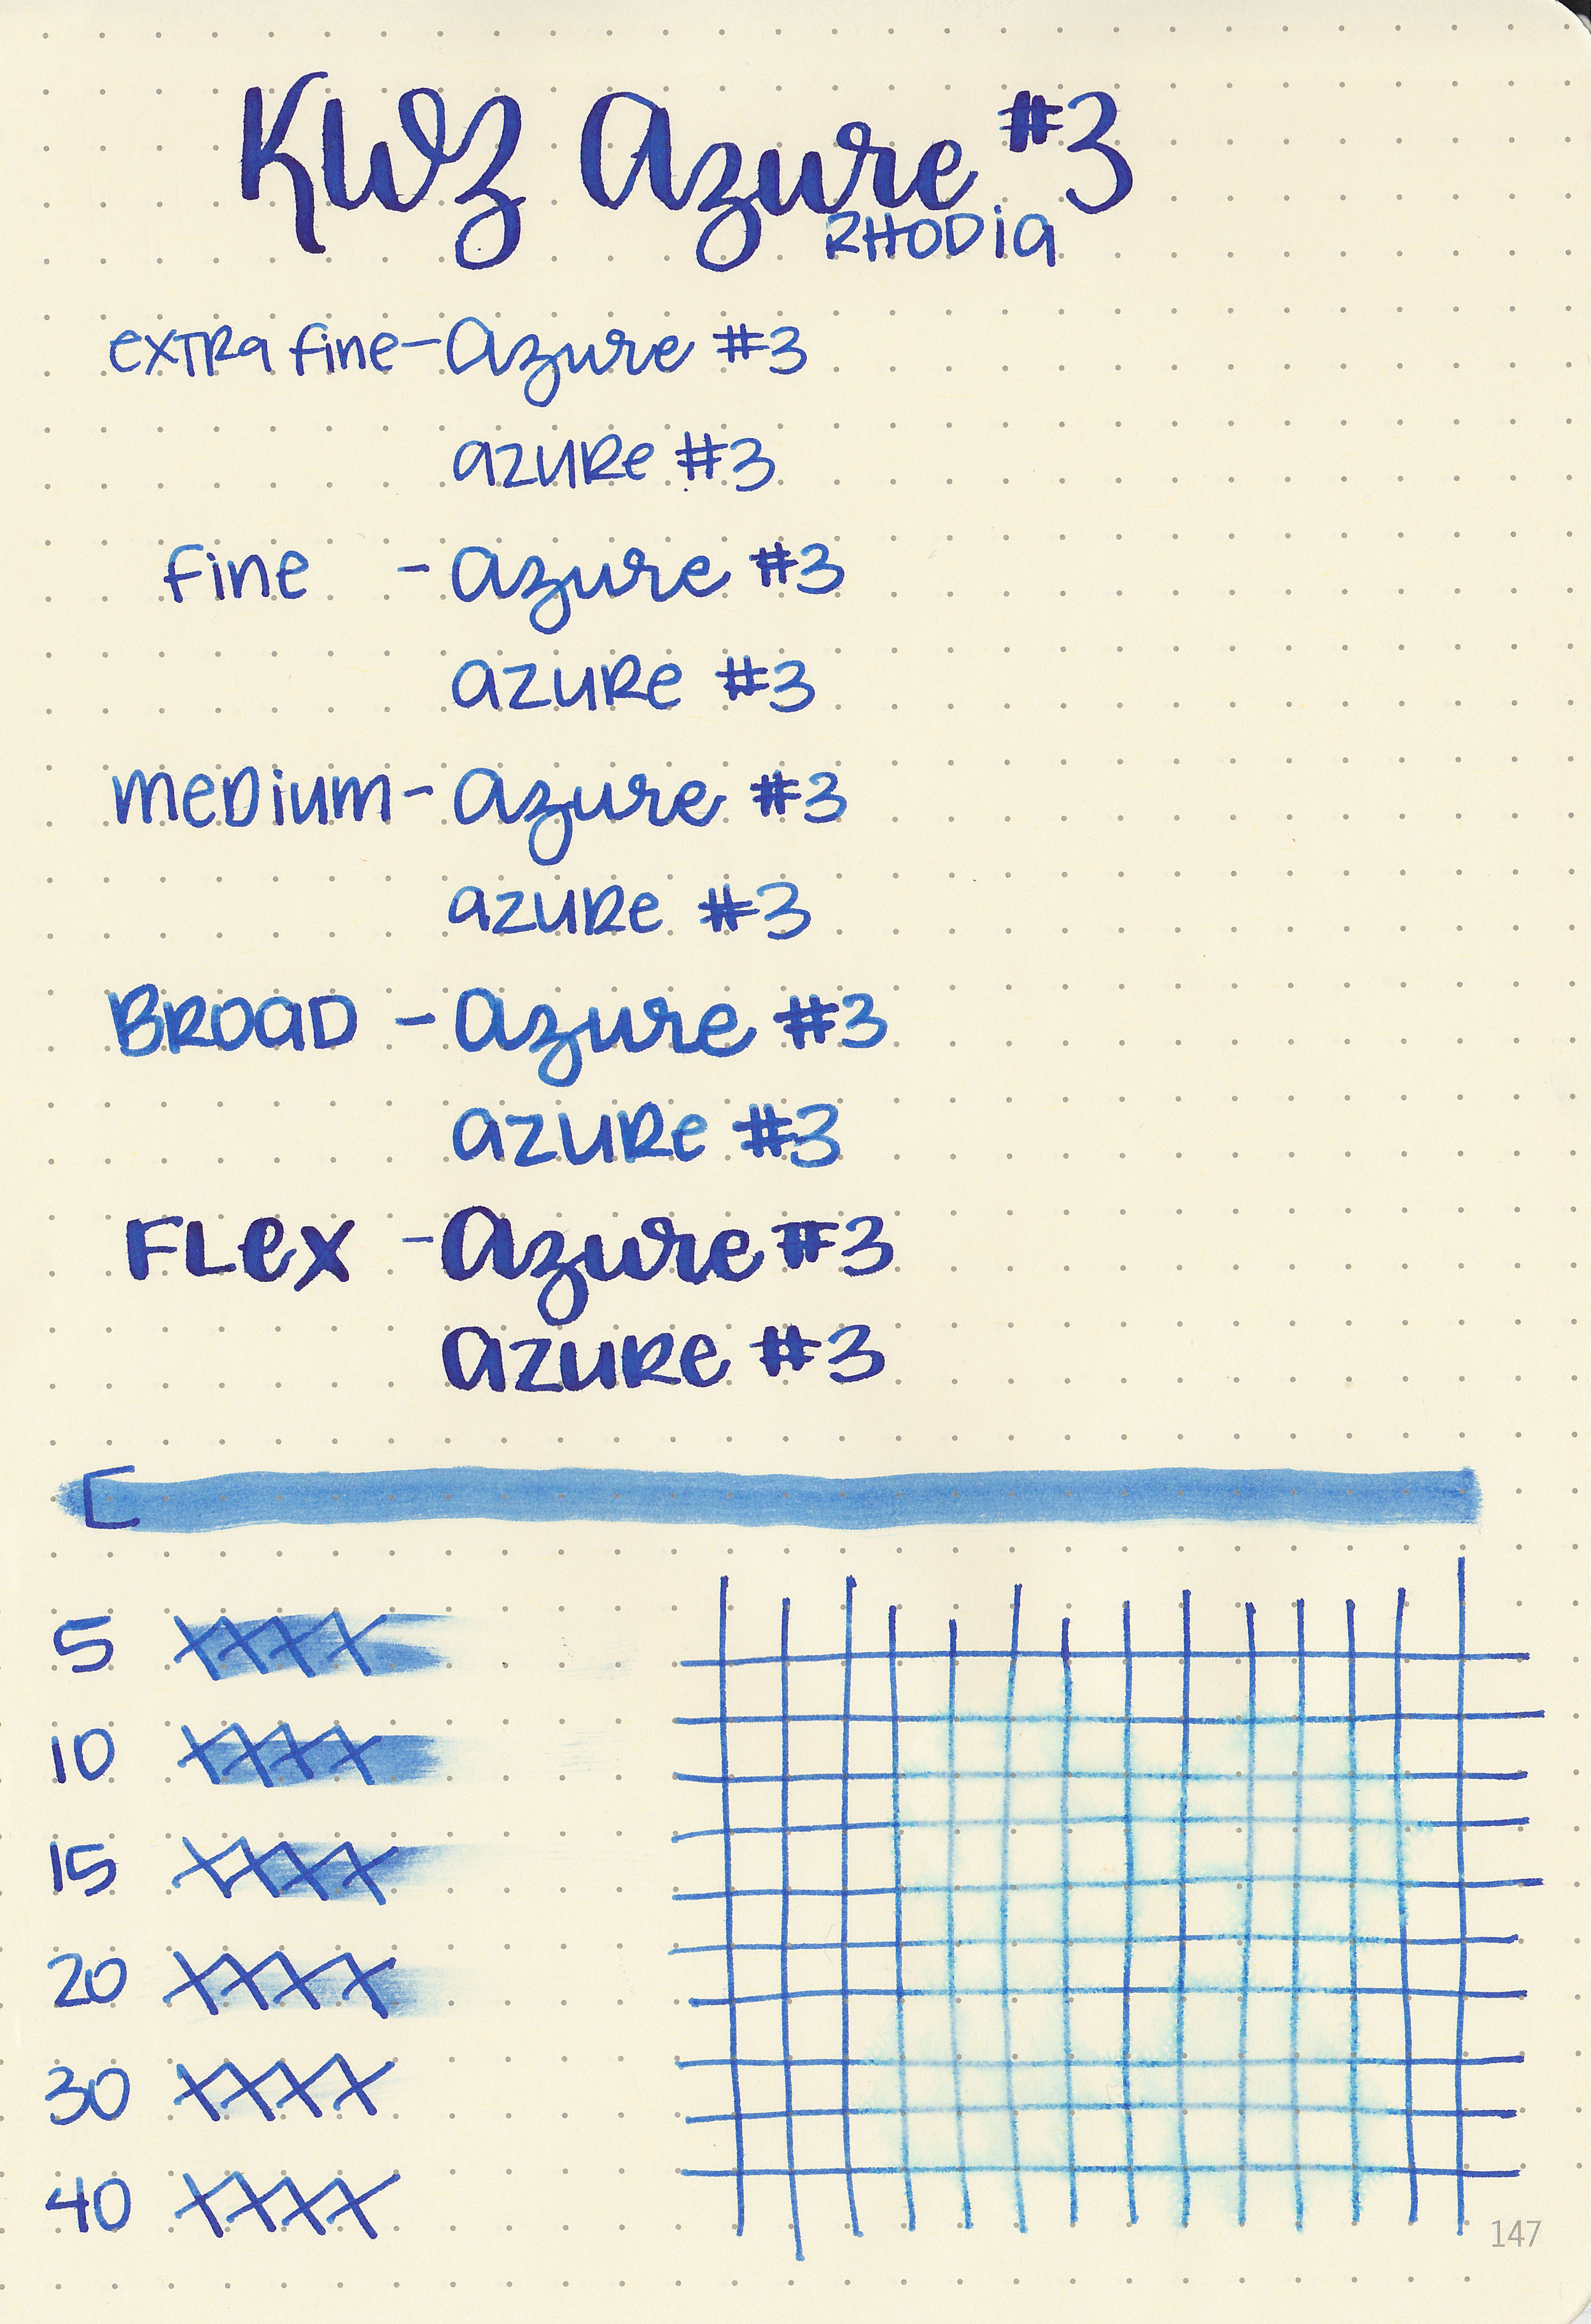 KWZ Azure #3
RHODia
exTRa fine - Azure #3
azuRe #3
fine - Azure #3
azuRe #3
meDium - Azure #3
azuRe #3
BRoaD - Azure #3
azuRe #3
FLex - Azure #3
azuRe #3
5 XXXX
10 XXXX
15 XXXX
20 XXXX
30 XXXX
40 XXXX
147